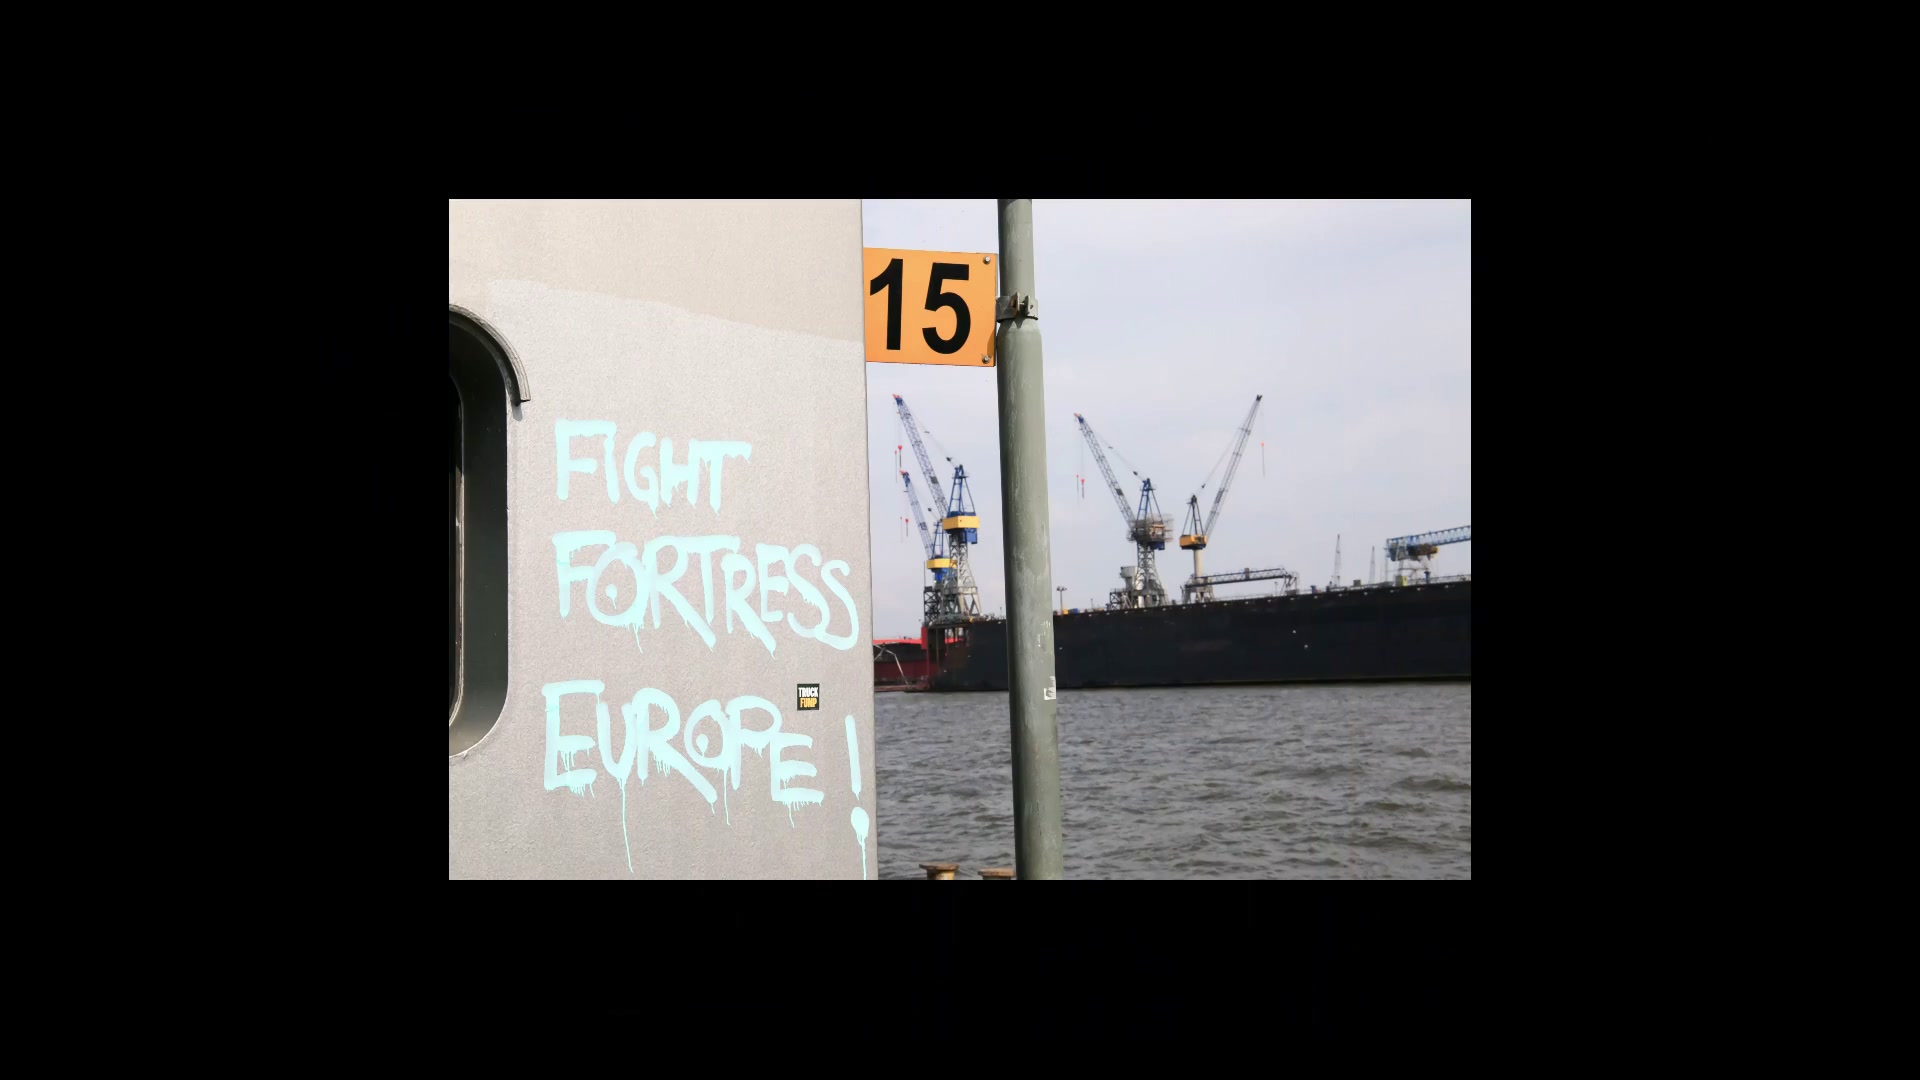 15
FIGHT
FORTRESS
EUROPE!
TRUCK
FUMP